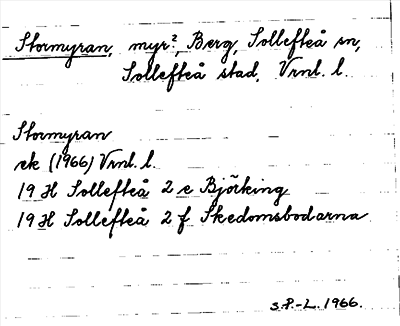 Stormyran, myr?, Berg, Sollefteå sn,
Sollefteå stad, Vrnl. l.
Stormyran
ek (1966) Vrnl. l.
19 H Sollefteå 2 e Björking
19 H Sollefteå 2 f Skedomsbodarna
S.P.-L. 1966.